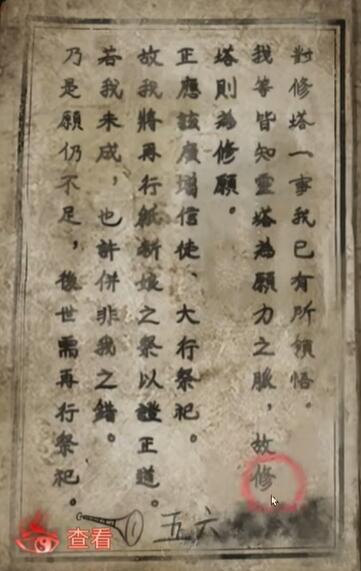 對修塔一事我已有所領悟。
我等皆知靈塔為願力之脈，故修
塔則為修願。
正應該廣增信徒、大行祭祀。
故我將再行紙新娘之祭以證正道。
若我未成，也許併非我之錯。
乃是願仍不足，後世需再行祭祀。
五六
查看